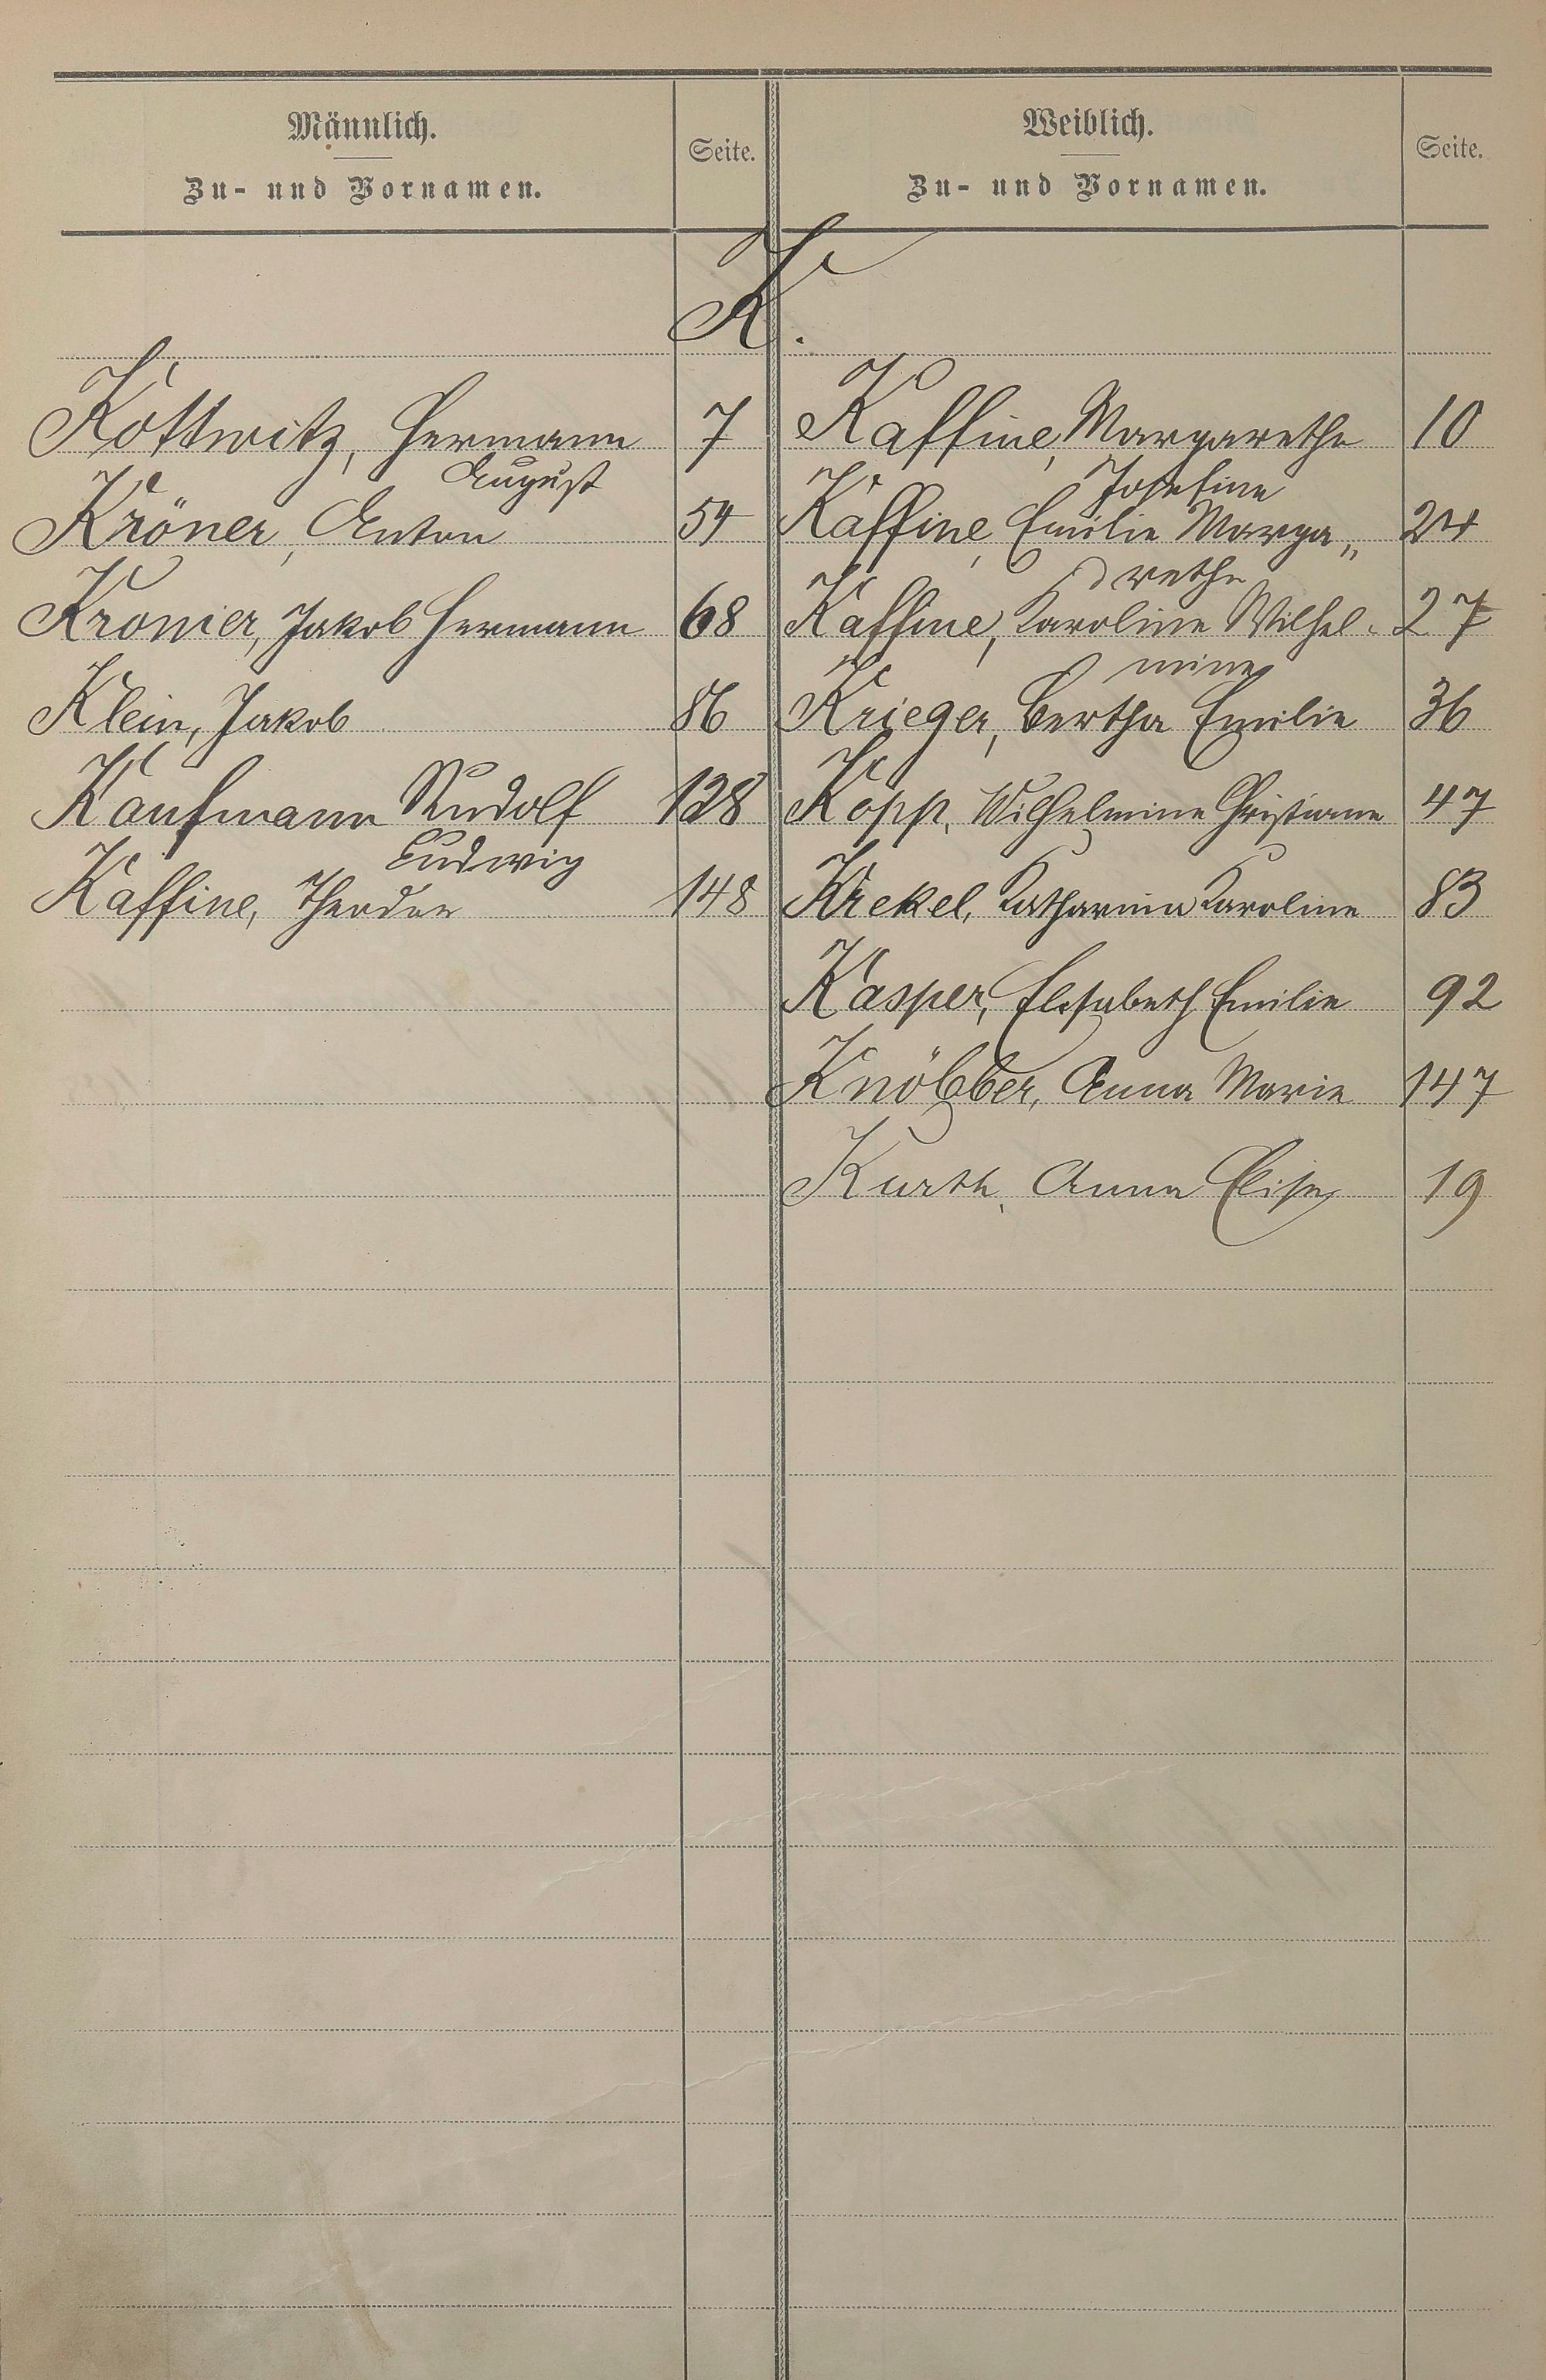 Männlich.
Zu- und Vornamen.
Seite.
Weiblich.
Zu- und Vornamen.
Seite.
K.
Kottwitz, Hermann 7
August
Kröner, Anton 54
Kromer, Jakob Hermann 68
Klein, Jakob 86
Kaufmann Rudolf 128
Ludwig
Kaffine, Theodor 148
Kaffine, Margarethe 10
Josefine
Kaffine, Emilie Marga„ 24
rethe
Kaffine, Karoline Wilhel- 27
mine
Krieger, Bertha Emilie 36
Kopp, Wilhelmine Christiane 47
Krekel, Katharina Karoline 83
Kasper, Elisabeth Emilie 92
Knöbber, Anna Marie 147
Kurth, Anna Elise 19